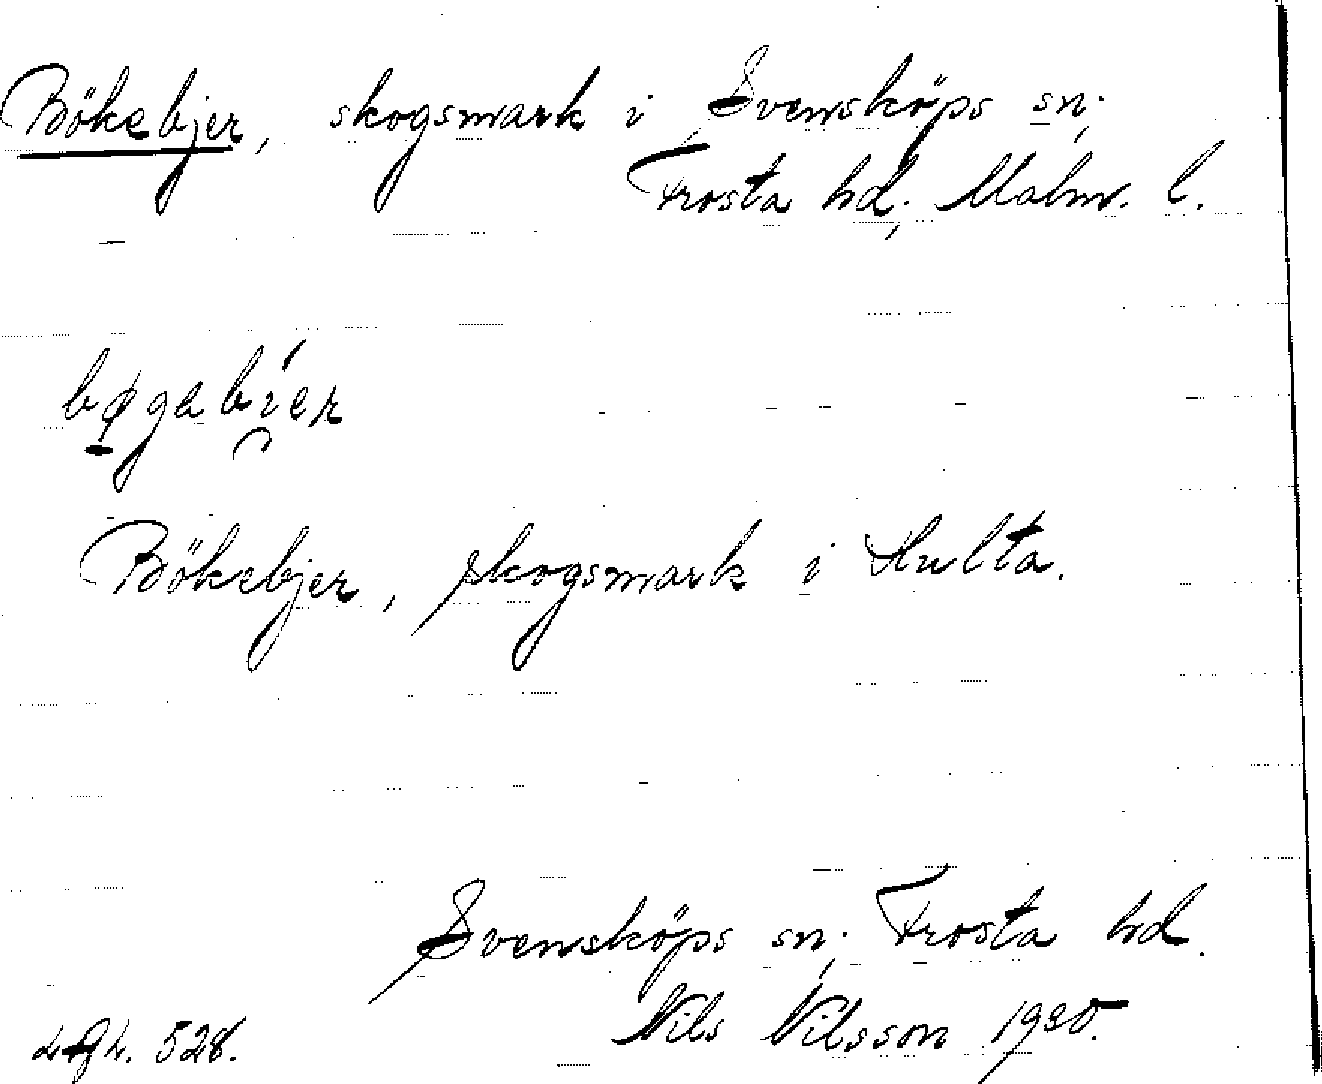 Bökebjer, skogsmark i Svensköps sn.,
Frosta hd., Malm. l.
bøgabier
Bökebjer, skogsmark i Hulta.
Svensköps sn., Frosta hd.
528. Nils Nilsson 1920.